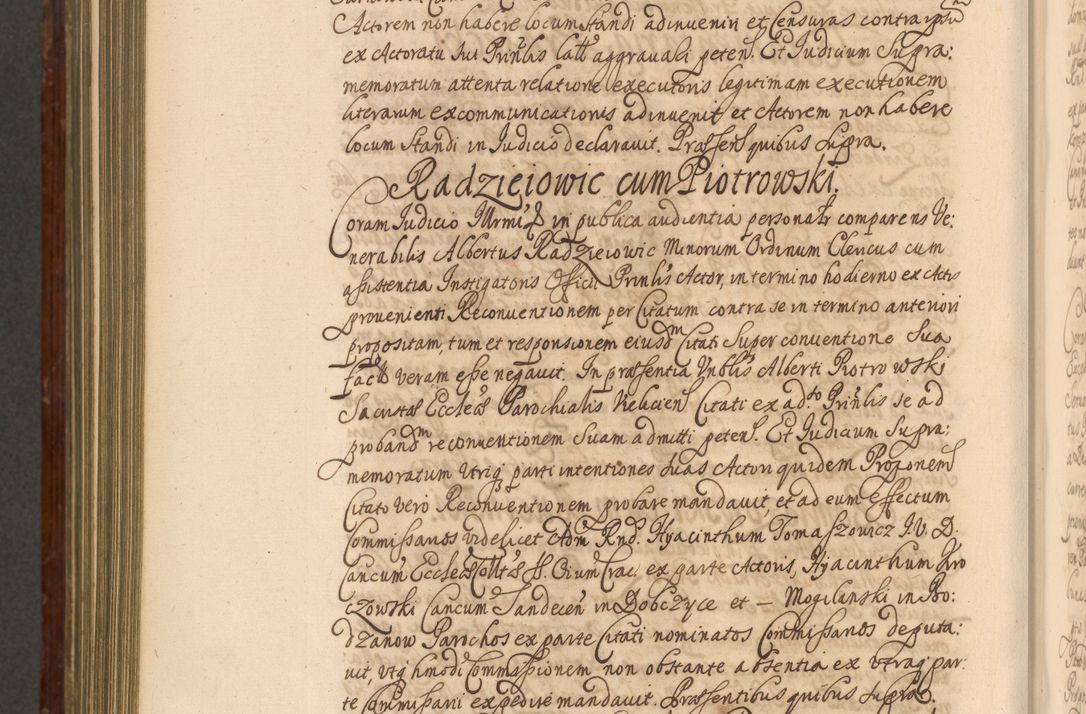 Actorem non habere locum standi adinveniri et Censuras contra ipsū
ex Actoratu sui Prin̄lis latt̄ aggravali petenʃ. Et Iudicium Supra:
memoratum attenta relatione executoris legitimam executionem
literarum excommunicationis adinvenit et Actorem non habere
locum standi in Iudicio declaravit. Præsenʃ quibus supra.
Radzieiowic cum Piotrowski.
Coram Iudicio Illrmi in publica audientia personalr comparens Ve:
nerabilis Albertus Radzieiowic Minorum Ordinum Clericus cum
assistentia Instigatoris Officii Prinlis Actor, in termino hodierno ex Actis
provenienti Reconventionem per Citatum contra se in termino anteriori
propositam, tum et responsionem eiusdm Citati super conventione Sua
factā veram esse negavit. In præsentia Vnblis Alberti Piotrowski
Sacristæ Ecclæ Parochialis Kelicienʃ Citati ex ad.to Prin̄lis se ad
probandm reconventionem Suam admitti petenʃ. Et Iudicium Supra:
memoratum utriq parti intentiones suas Actori quidem Proponem
Citato vero Reconventionem probare mandavit, et ad eum effectum
Commissarios videlicet Adm Rnd. Hyacinthum Tomaszowicz I.V.D.
Cancum Eccles Colltæ SS. Oium Crac. ex parte Actoris, Hyacinthum Kro
czowski Cancum Sandecen in Dobczyce et — Mogilanski in Bo:
dzanow Parochos ex parte Citati nominatos Commissarios deputa:
vit, utq hmodi Commissionem non obstante absentia ex utraq par:
te Commissarii expedire mandavit. Præsentibus quibus supra.